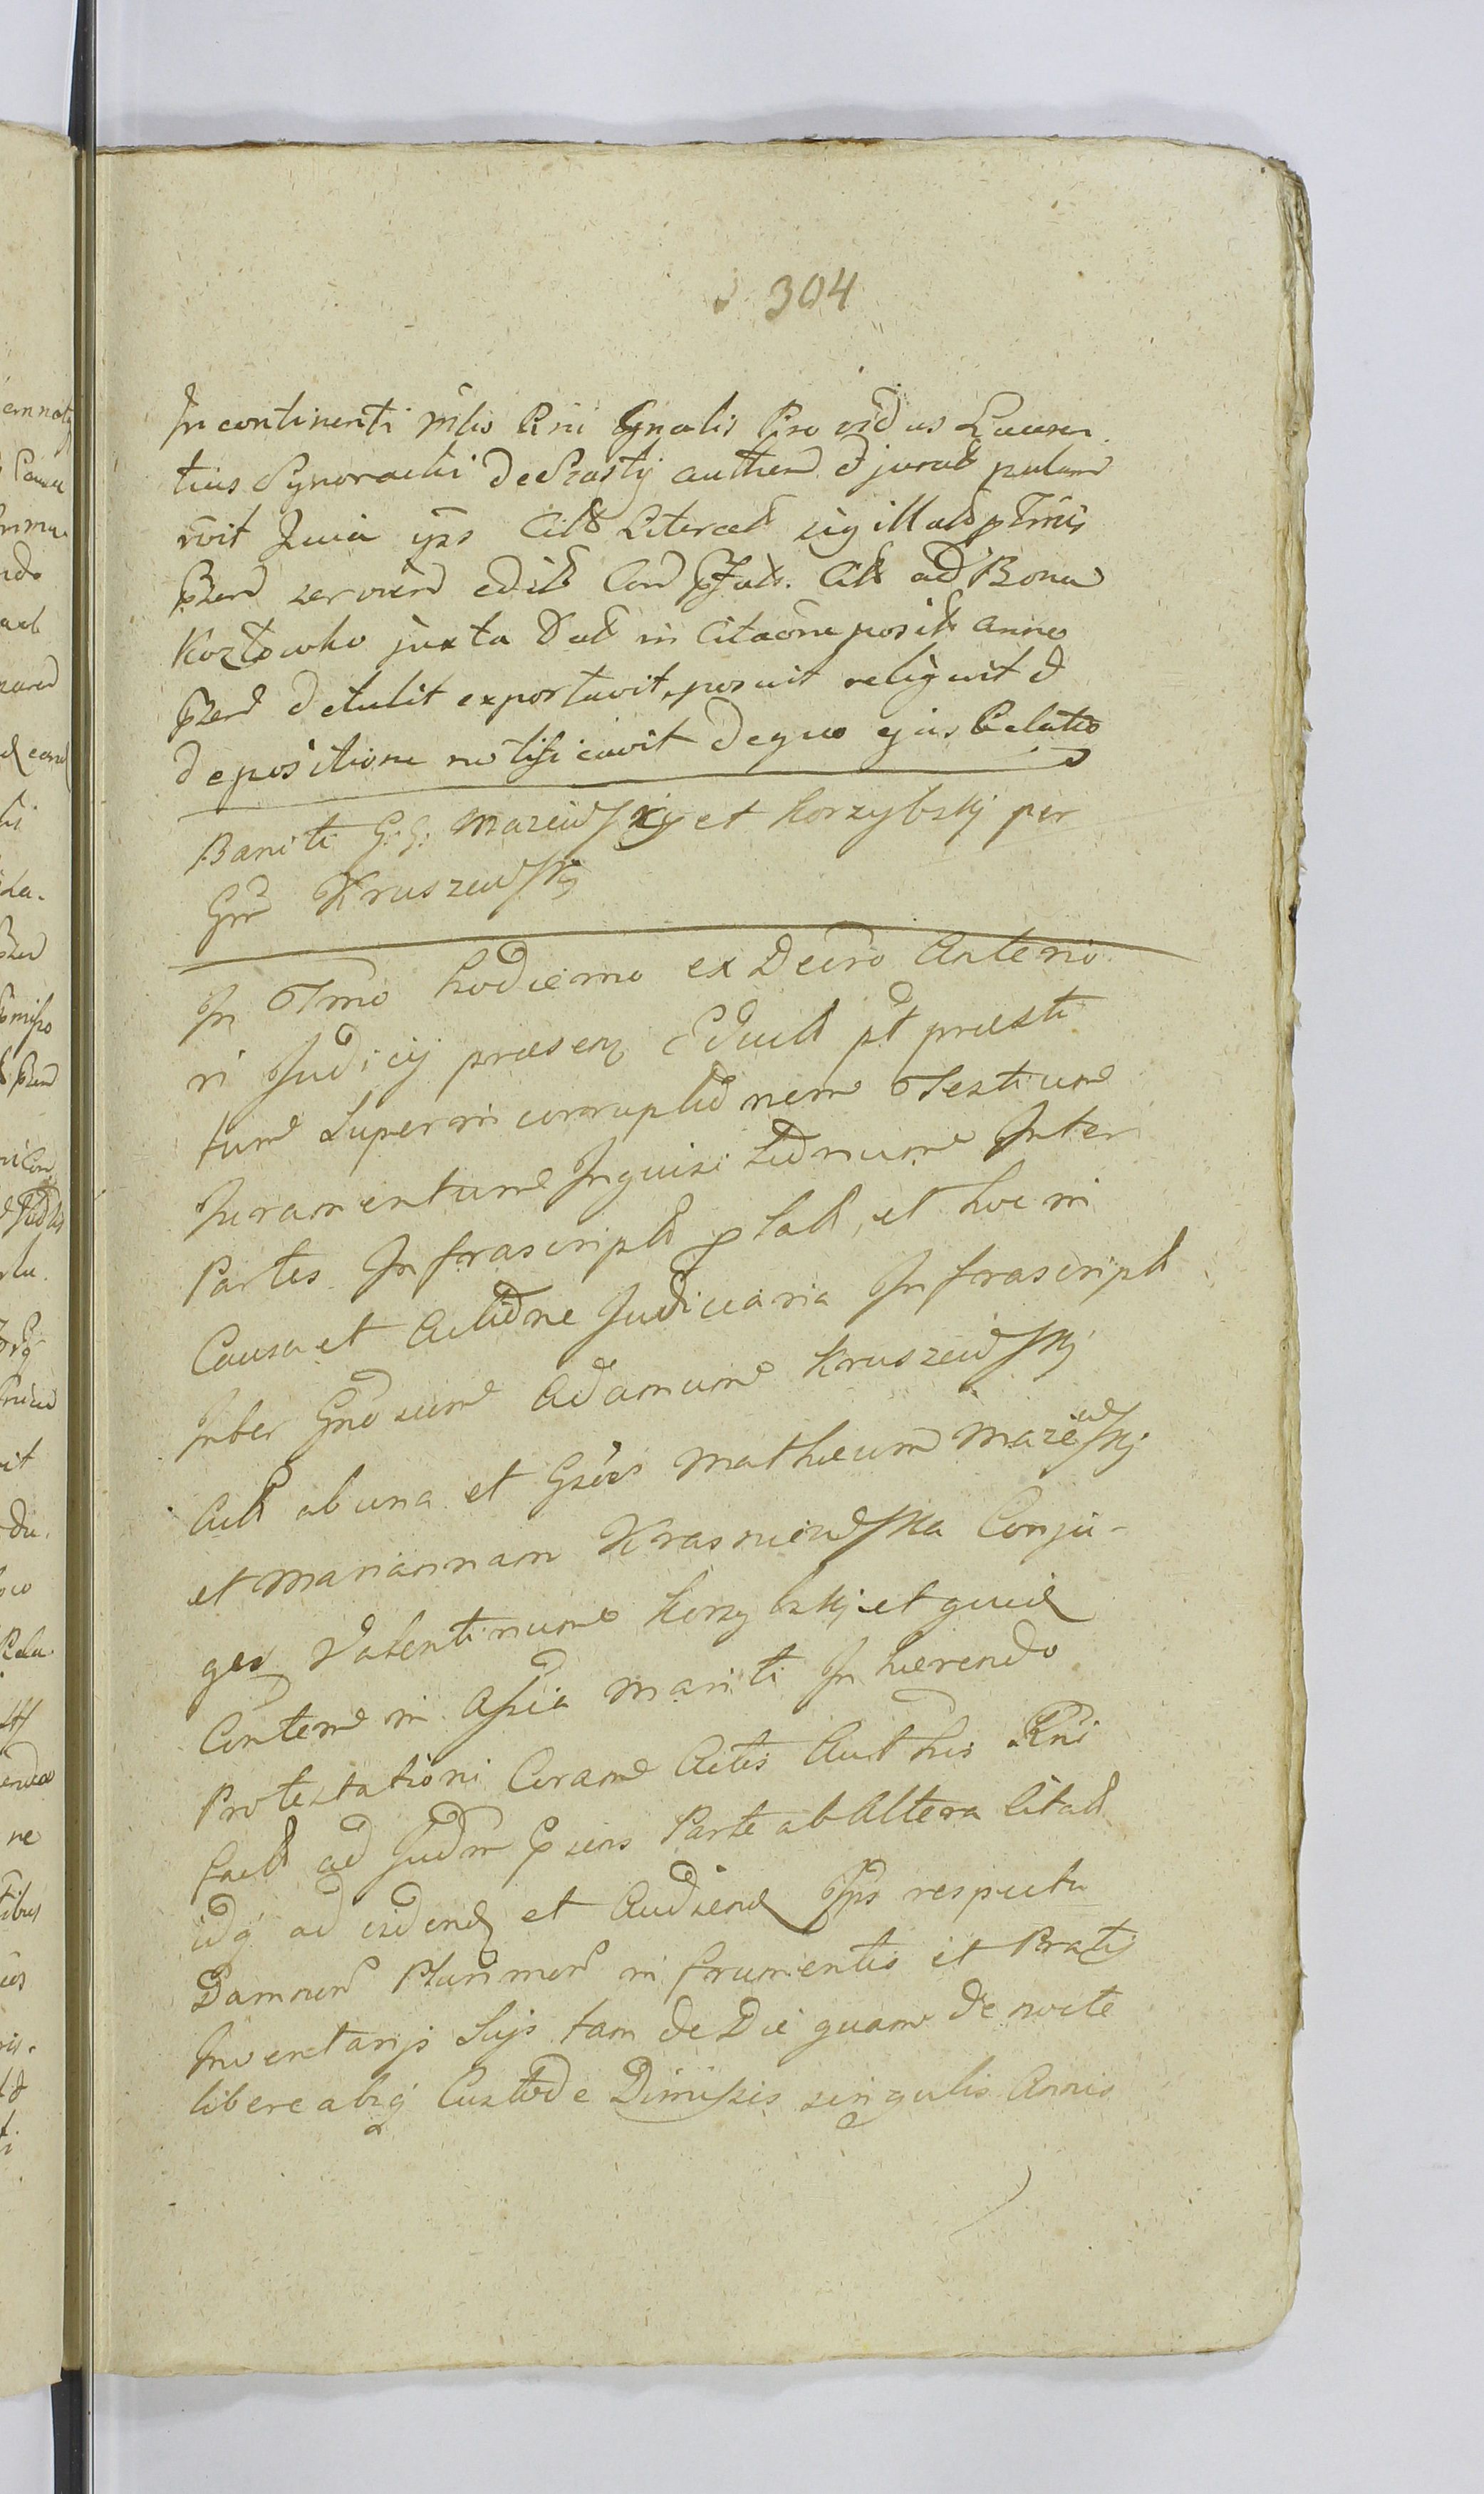 304
In continenti Mlis Rni Gnalis Providus Lauren
tius Synoracki de Srasty authen et jurat palam
vit Quia ips Citt Literat sigillat ptmis
servien edit Con Citt ad Bona
Kozłowko juxta Dat in Citaone posit anno
detulit exportavit, posuit reliquit et
depositione notificavit de quo ejus Relatio
Baniti G: G: Mazewskj et Korzybskj per
Gm Kruszewskj
In Tmo hodierno ex Decro Anterio
ri Judicij praesen Educt pt praesti
tum Super in corruptionem Testium
Juramentum Inquisitionum Inter
Partes Infrascript plat, et hoc in
Causa et Actione Judiciaria Infrascript
Inter Gnosum Adamum Kruszewskj
Act ab una et Gsos Matheum Mazewskj
et Mariannam Krasniewska Conju-
ges Valentinum Korzybskj et quid
Contem in Assia Mariti Inhaerendo
Protestationi Coram Actis Authis Rni
fact ad Judm psens Parte ab Altera Citatt
idq ad vidend et Audiend Ips respectu
Damnor Plurimor in frumentis et Pratis
Inventarijs Suis tam de Die quam de nocte
libere absq Custode Dimissis singulis Annis